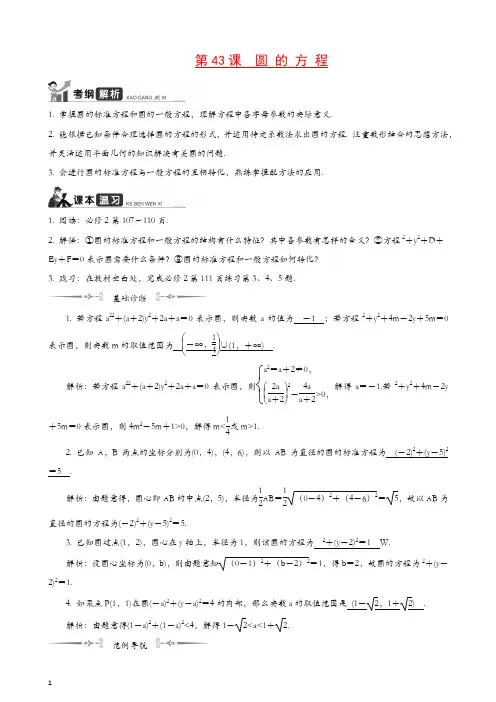 第43课 圆 的 方 程
考纲 解析 KAO GANG JIE XI
1. 掌握圆的标准方程和圆的一般方程，理解方程中各字母参数的实际意义.
2. 能根据已知条件合理选择圆的方程的形式，并运用待定系数法求出圆的方程. 注重数形结合的思想方法，
并灵活运用平面几何的知识解决有关圆的问题.
3. 会进行圆的标准方程与一般方程的互相转化，熟练掌握配方法的应用.
课本 温习 KE BEN WEN XI
1. 阅读：必修2第107～110页.
2. 解悟：①圆的标准方程和一般方程的结构有什么特征？其中各参数有怎样的含义？②方程²＋y²＋D＋
Ey＋F＝0表示圆需要什么条件？③圆的标准方程和一般方程如何转化？
3. 践习：在教材空白处，完成必修2第111页练习第3、4、5题.
基础诊断
1. 若方程a²²＋(a＋2)y²＋2a＋a＝0表示圆，则实数a的值为 －1 ；若方程²＋y²＋4m－2y＋5m＝0
表示圆，则实数m的取值范围为 (－∞，1/4)∪(1，＋∞) .
解析：若方程a²²＋(a＋2)y²＋2a＋a＝0表示圆，则{a²＝a＋2≠0，(2a/(a＋2))²－4a/(a＋2)>0，解得a＝－1.若²＋y²＋4m－2y
＋5m＝0表示圆，则4m²－5m＋1>0，解得m<1/4或m>1.
2. 已知A，B两点的坐标分别为(0，4)，(4，6)，则以AB为直径的圆的标准方程为 (－2)²＋(y－5)²
＝5 .
解析：由题意得，圆心即AB的中点(2，5)，半径为1/2AB＝1/2√(（0－4）²＋（4－6）²)＝√5，故以AB为
直径的圆的方程为(－2)²＋(y－5)²＝5.
3. 已知圆过点(1，2)，圆心在y轴上，半径为1，则该圆的方程为 ²＋(y－2)²＝1 W.
解析：设圆心坐标为(0，b)，则由题意知√(（0－1）²＋（b－2）²)＝1，得b＝2，故圆的方程为²＋(y－
2)²＝1.
4. 如果点P(1，1)在圆(－a)²＋(y－a)²＝4的内部，那么实数a的取值范围是 (1－√2，1＋√2) .
解析：由题意得(1－a)²＋(1－a)²<4，解得1－√2<a<1＋√2.
范例导航
1